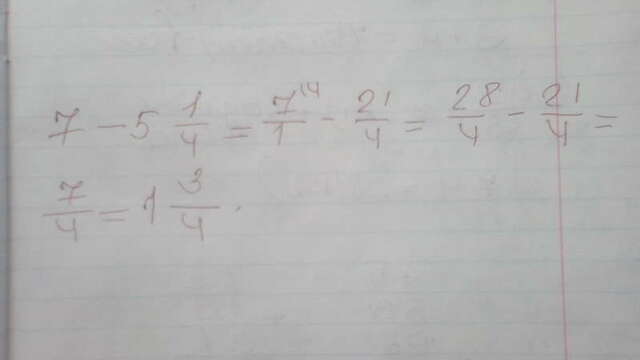 7 - 5 1/4 = 7/1 \4 - 21/4 = 28/4 - 21/4 =
7/4 = 1 3/4 .